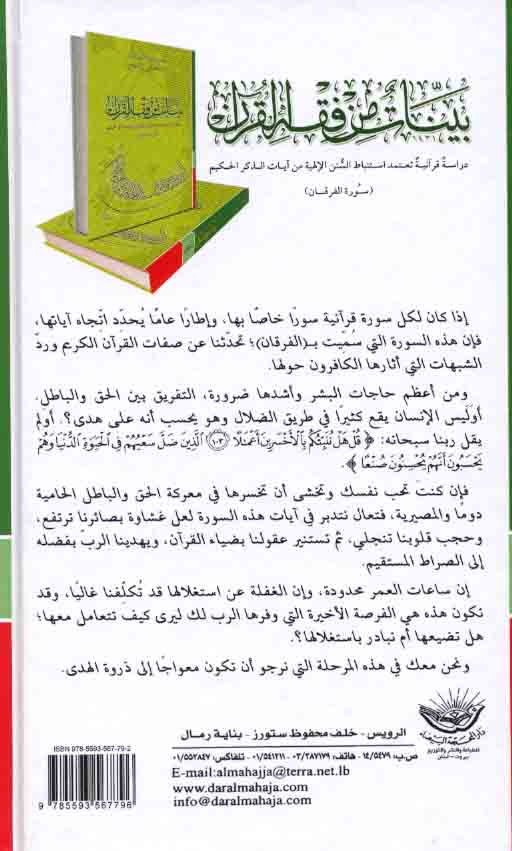 بينات من فقه القرآن
دراسة قرآنية تعتمد استنباط السُّنن الإلهية من آيات الذكر الحكيم
(سورة الفرقان)
إذا كان لكل سورة قرآنية سورًا خاصًا بها، وإطارًا عامًا يُحدّد اتجاه آياتها،
فإن هذه السورة التي سُمِّيت بـ(الفرقان)؛ تحدّثنا عن صفات القرآن الكريم وردّ
الشبهات التي أثارها الكافرون حولها.
ومن أعظم حاجات البشر وأشدها ضرورة، التفريق بين الحق والباطل.
أوليس الإنسان يقع كثيرًا في طريق الضلال وهو يحسب أنه على هدى؟. أولم
يقل ربنا سبحانه: ﴿قُلْ هَلْ نُنَبِّئُكُم بِالْأَخْسَرِينَ أَعْمَالًا ١٠٣ الَّذِينَ ضَلَّ سَعْيُهُمْ فِي الْحَيَوٰةِ الدُّنْيَا وَهُمْ
يَحْسَبُونَ أَنَّهُمْ يُحْسِنُونَ صُنْعًا﴾.
فإن كنت تحب نفسك وتخشى أن تخسرها في معركة الحق والباطل الحامية
دومًا والمصيرية، فتعال نتدبر في آيات هذه السورة لعل غشاوة بصائرنا ترتفع،
وحجب قلوبنا تنجلي، ثم تستنير عقولنا بضياء القرآن، ويهدينا الربّ بفضله
إلى الصراط المستقيم.
إن ساعات العمر محدودة، وإن الغفلة عن استغلالها قد تُكلّفنا غاليًا، وقد
تكون هذه هي الفرصة الأخيرة التي وفرها الرب لك ليرى كيف تتعامل معها؛
هل تضيعها أم تبادر باستغلالها؟.
ونحن معك في هذه المرحلة التي نرجو أن تكون معراجًا إلى ذروة الهدى.
دار المحجة البيضاء
للطباعة والنشر والتوزيع
بيروت - لبنان
الرويس - خلف محفوظ ستورز - بناية رمال
ص.ب: ١٤/٥٤٧٩ - هاتف: ٠٣/٢٨٧١٧٩ - ٠١/٥٤١٢١١ - تلفاكس: ٠١/٥٥٢٨٤٧
E-mail:almahajja@terra.net.lb
www.daralmahaja.com
info@daralmahaja.com
ISBN 978-5593-567-79-2
9 785593 567796